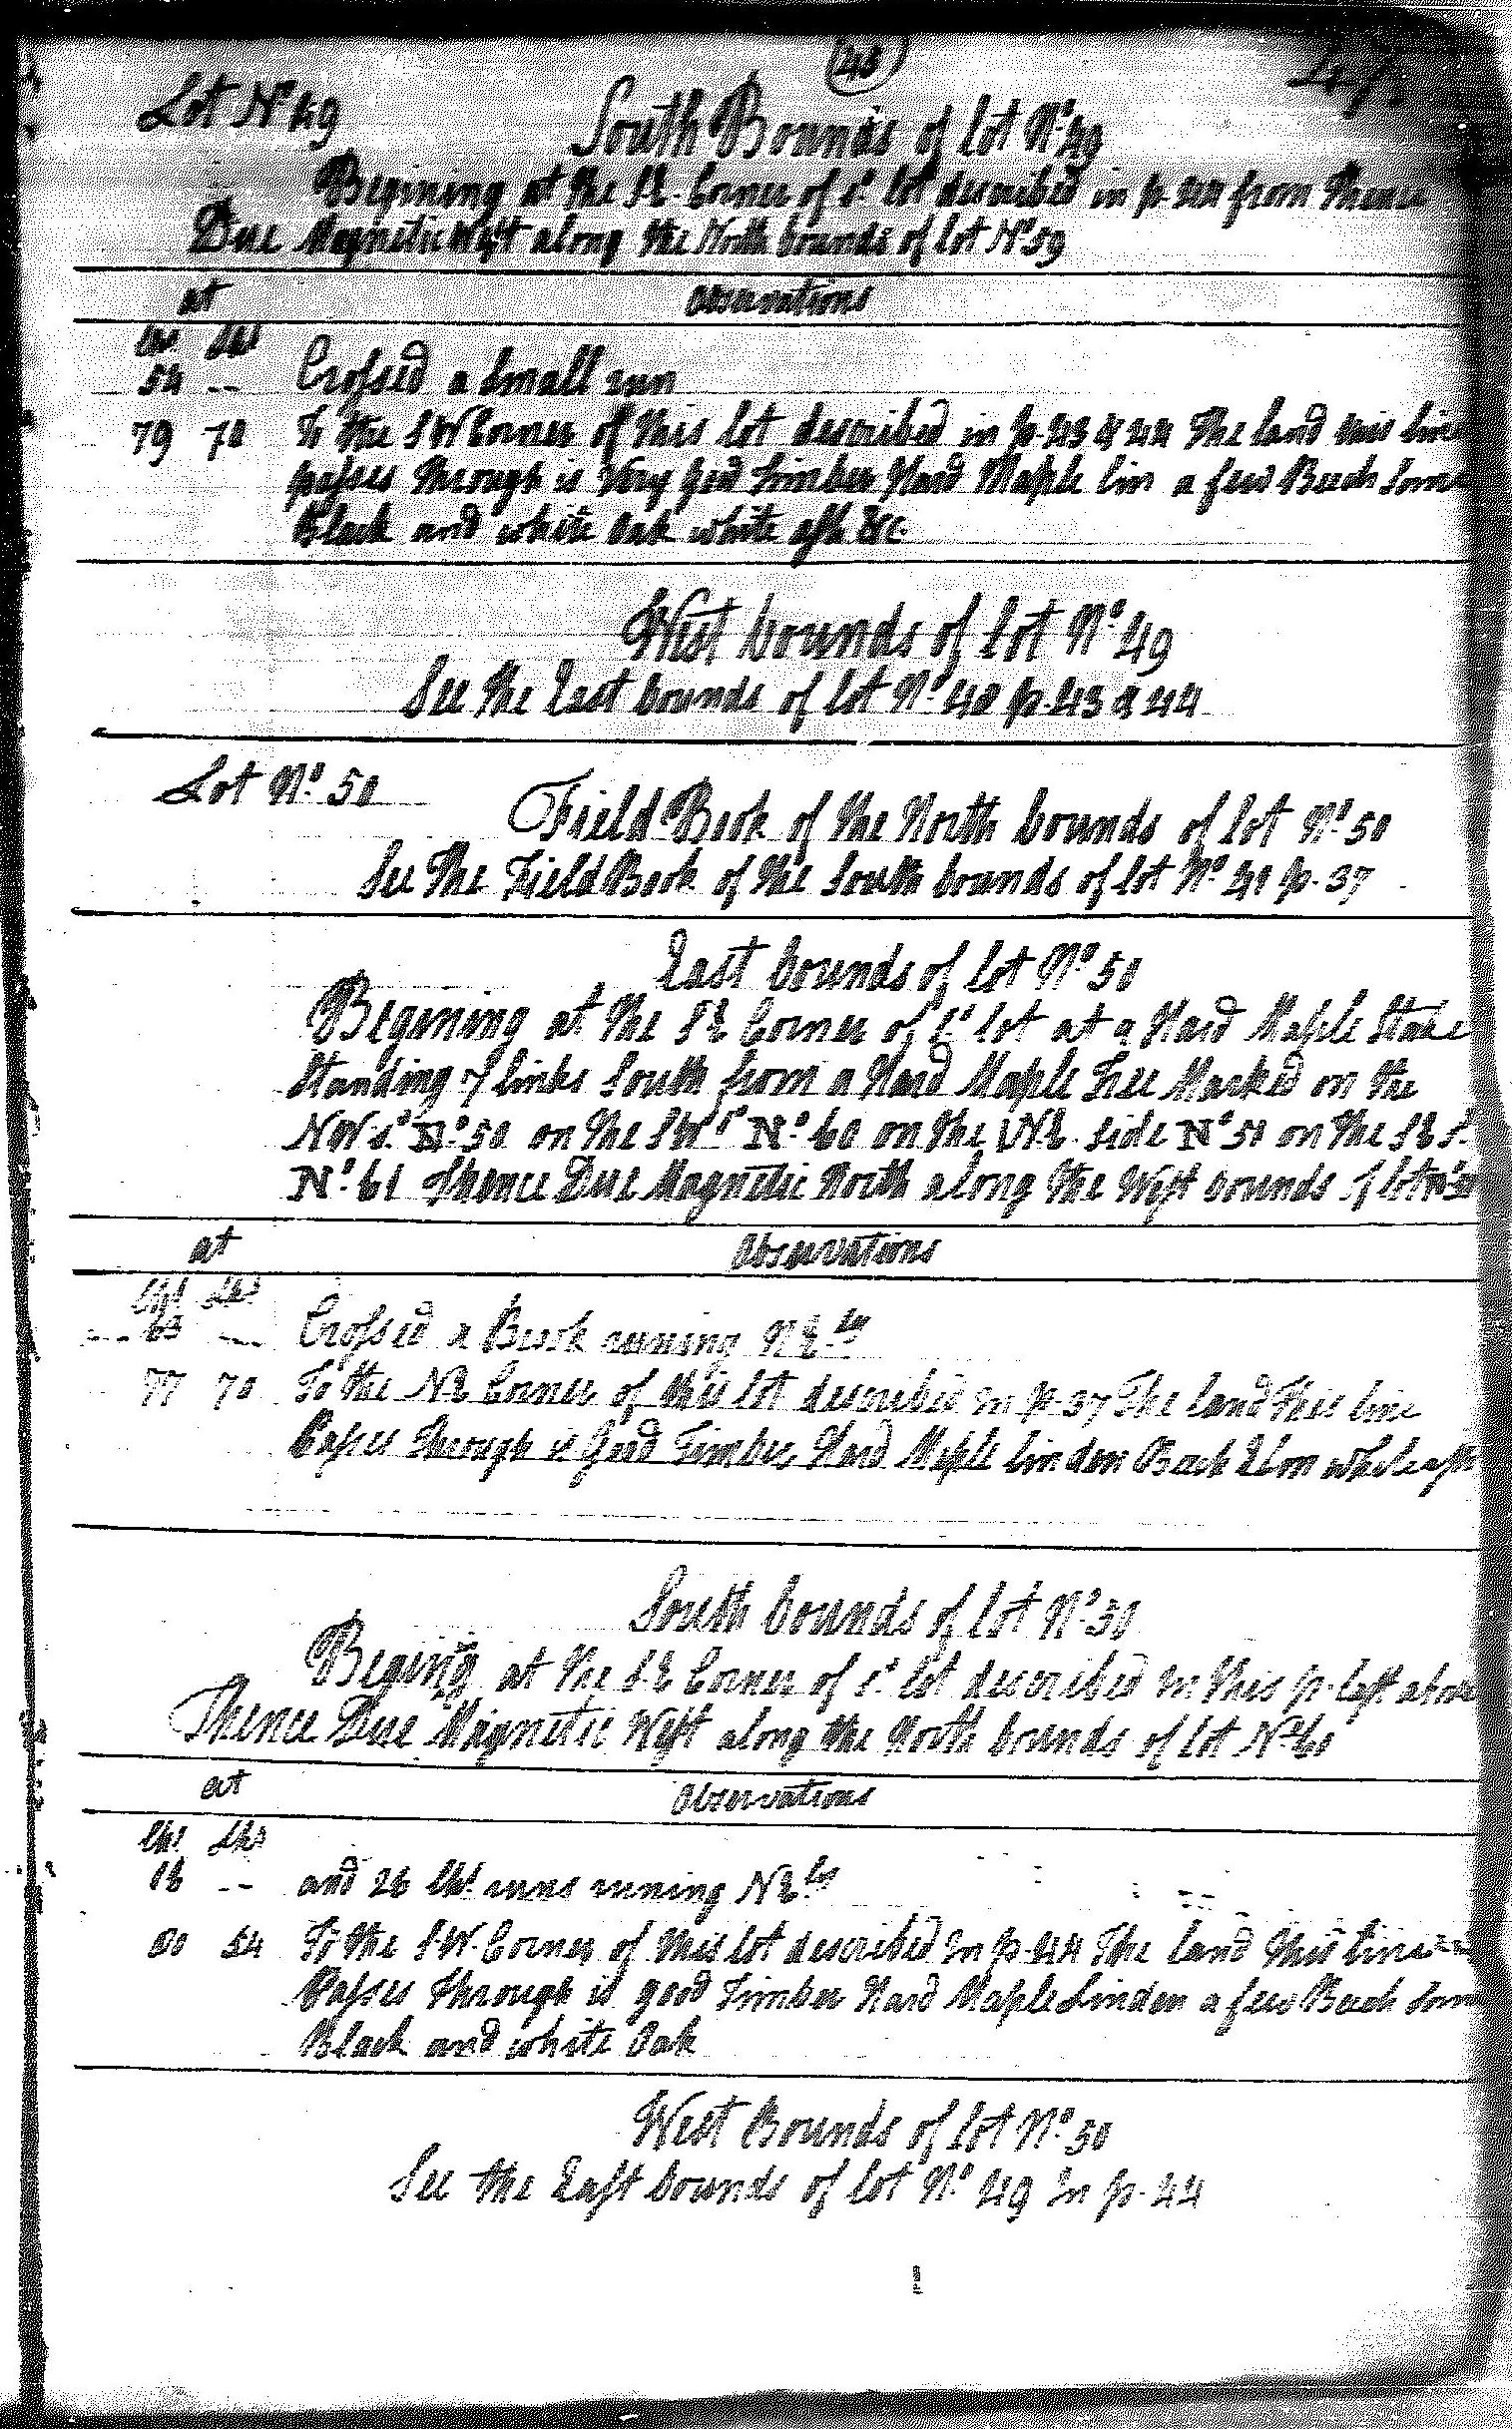 45
Lot No 49
South Bounds of lot No 49
Begining at the S.E. Corner of sd lot described in p. 44 from Thence
Due Magnetic West along the North bounds of lot No 59
at Observations
Chs Lks
54 -- Crossed a Small run
79 70 To the SW Corner of this lot described in p. 43 & 44 The land this line
passes through is Very good Timber Hard Maple lin a few Beech Some
Black and white Oak white ash &c.
West bounds of lot No 49
See The East bounds of lot No 48 p. 43 & 44
Lot No 50
Field Book of the North bounds of lot No 50
See The Field Book of the South bounds of lot No 40 p. 37
East bounds of lot No 50
Begining at the SE Corner of sd lot at a Hard Maple Stake
Standing 7 links South from a Hard Maple Tree Marked on the
NW sd No 50 on the SW sd No 60 on the NE side No 51 on the SE sd
No 61 Thence Due Magnetic North along the West bounds of lot No 51
at Observations
Chs Lks
63 -- Crossed a Brook runing NEly
77 70 To the NE Corner of this lot described in p. 37 The land this line
Passes through is good Timber Hard Maple linden Beech Elm white ash
South bounds of lot No 50
Begining at the S.E Corner of sd lot described in this p. last above
Thence Due Magnetic West along the North bounds of lot No 60
at Observations
Chs Lks
16 -- and 26 Chs runs runing NEly
80 54 To the SW. Corner of this lot described in p. 44 The land this line
Passes through is good Timber Hard Maple Linden a few Beech Some
Black and white Oak
West Bounds of lot No 50
See the East bounds of lot No 49 in p. 44